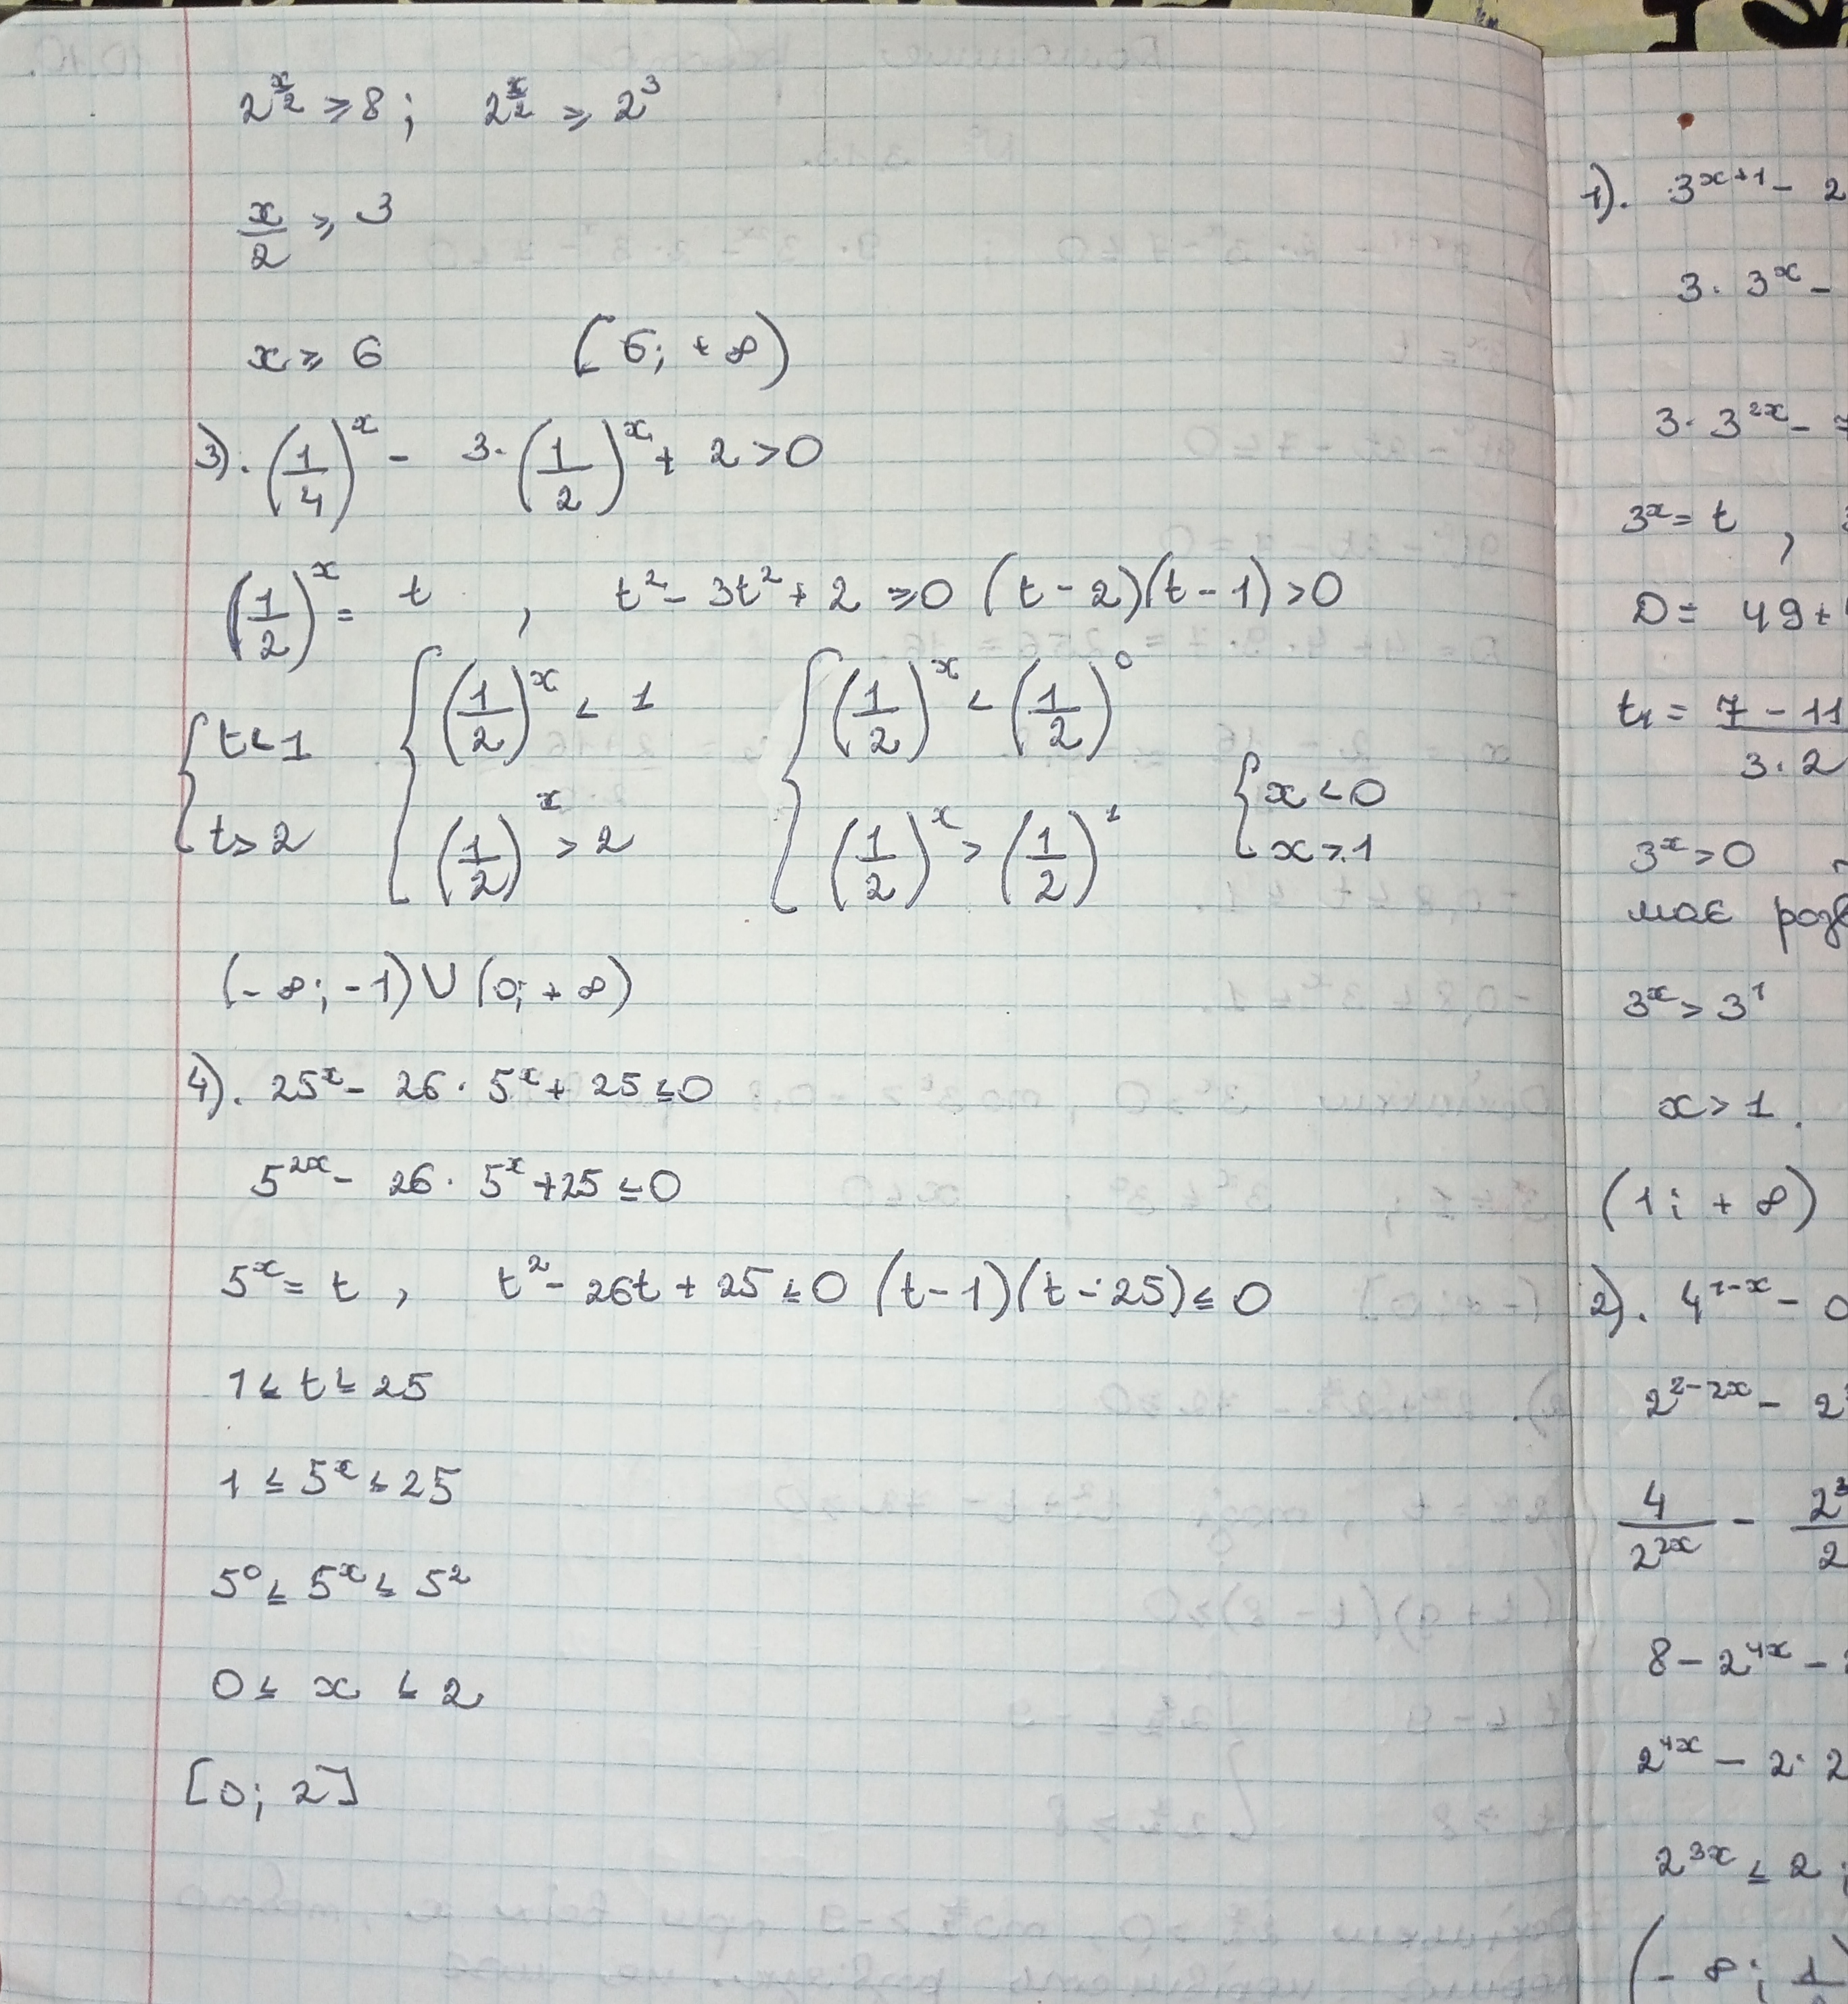 2^(x/2) ⩾ 8; 2^(x/2) ⩾ 2^3
x/2 ⩾ 3
x ⩾ 6 [6; +∞)
3). (1/4)^x - 3·(1/2)^x + 2 > 0
(1/2)^x = t, t^2 - 3t^2 + 2 ⩾ 0 (t-2)(t-1) > 0
{ t < 1 { (1/2)^x < 1 { (1/2)^x < (1/2)^0 { x < 0
t > 2 (1/2)^x > 2 (1/2)^x > (1/2)^1 x > 1
(-∞; -1) ∪ (0; +∞)
4). 25^x - 26·5^x + 25 ≤ 0
5^(2x) - 26·5^x + 25 ≤ 0
5^x = t, t^2 - 26t + 25 ≤ 0 (t-1)(t-25) ≤ 0
1 ≤ t ≤ 25
1 ≤ 5^x ≤ 25
5^0 ≤ 5^x ≤ 5^2
0 ≤ x ≤ 2
[0; 2]
1). 3^(x+1) - 2
3·3^x -
3·3^(2x) -
3^x = t,
D = 49 +
t1 = (7 - 11)/(3·2)
3^x > 0
має
3^x > 3^1
x > 1.
(1; +∞)
2). 4^(1-x) - 0
2^(2-2x) - 2
4/2^(2x) - 2^3/2
8 - 2^(4x) -
2^(4x) - 2·2
2^(3x) ≤ 2;
(-∞; 1